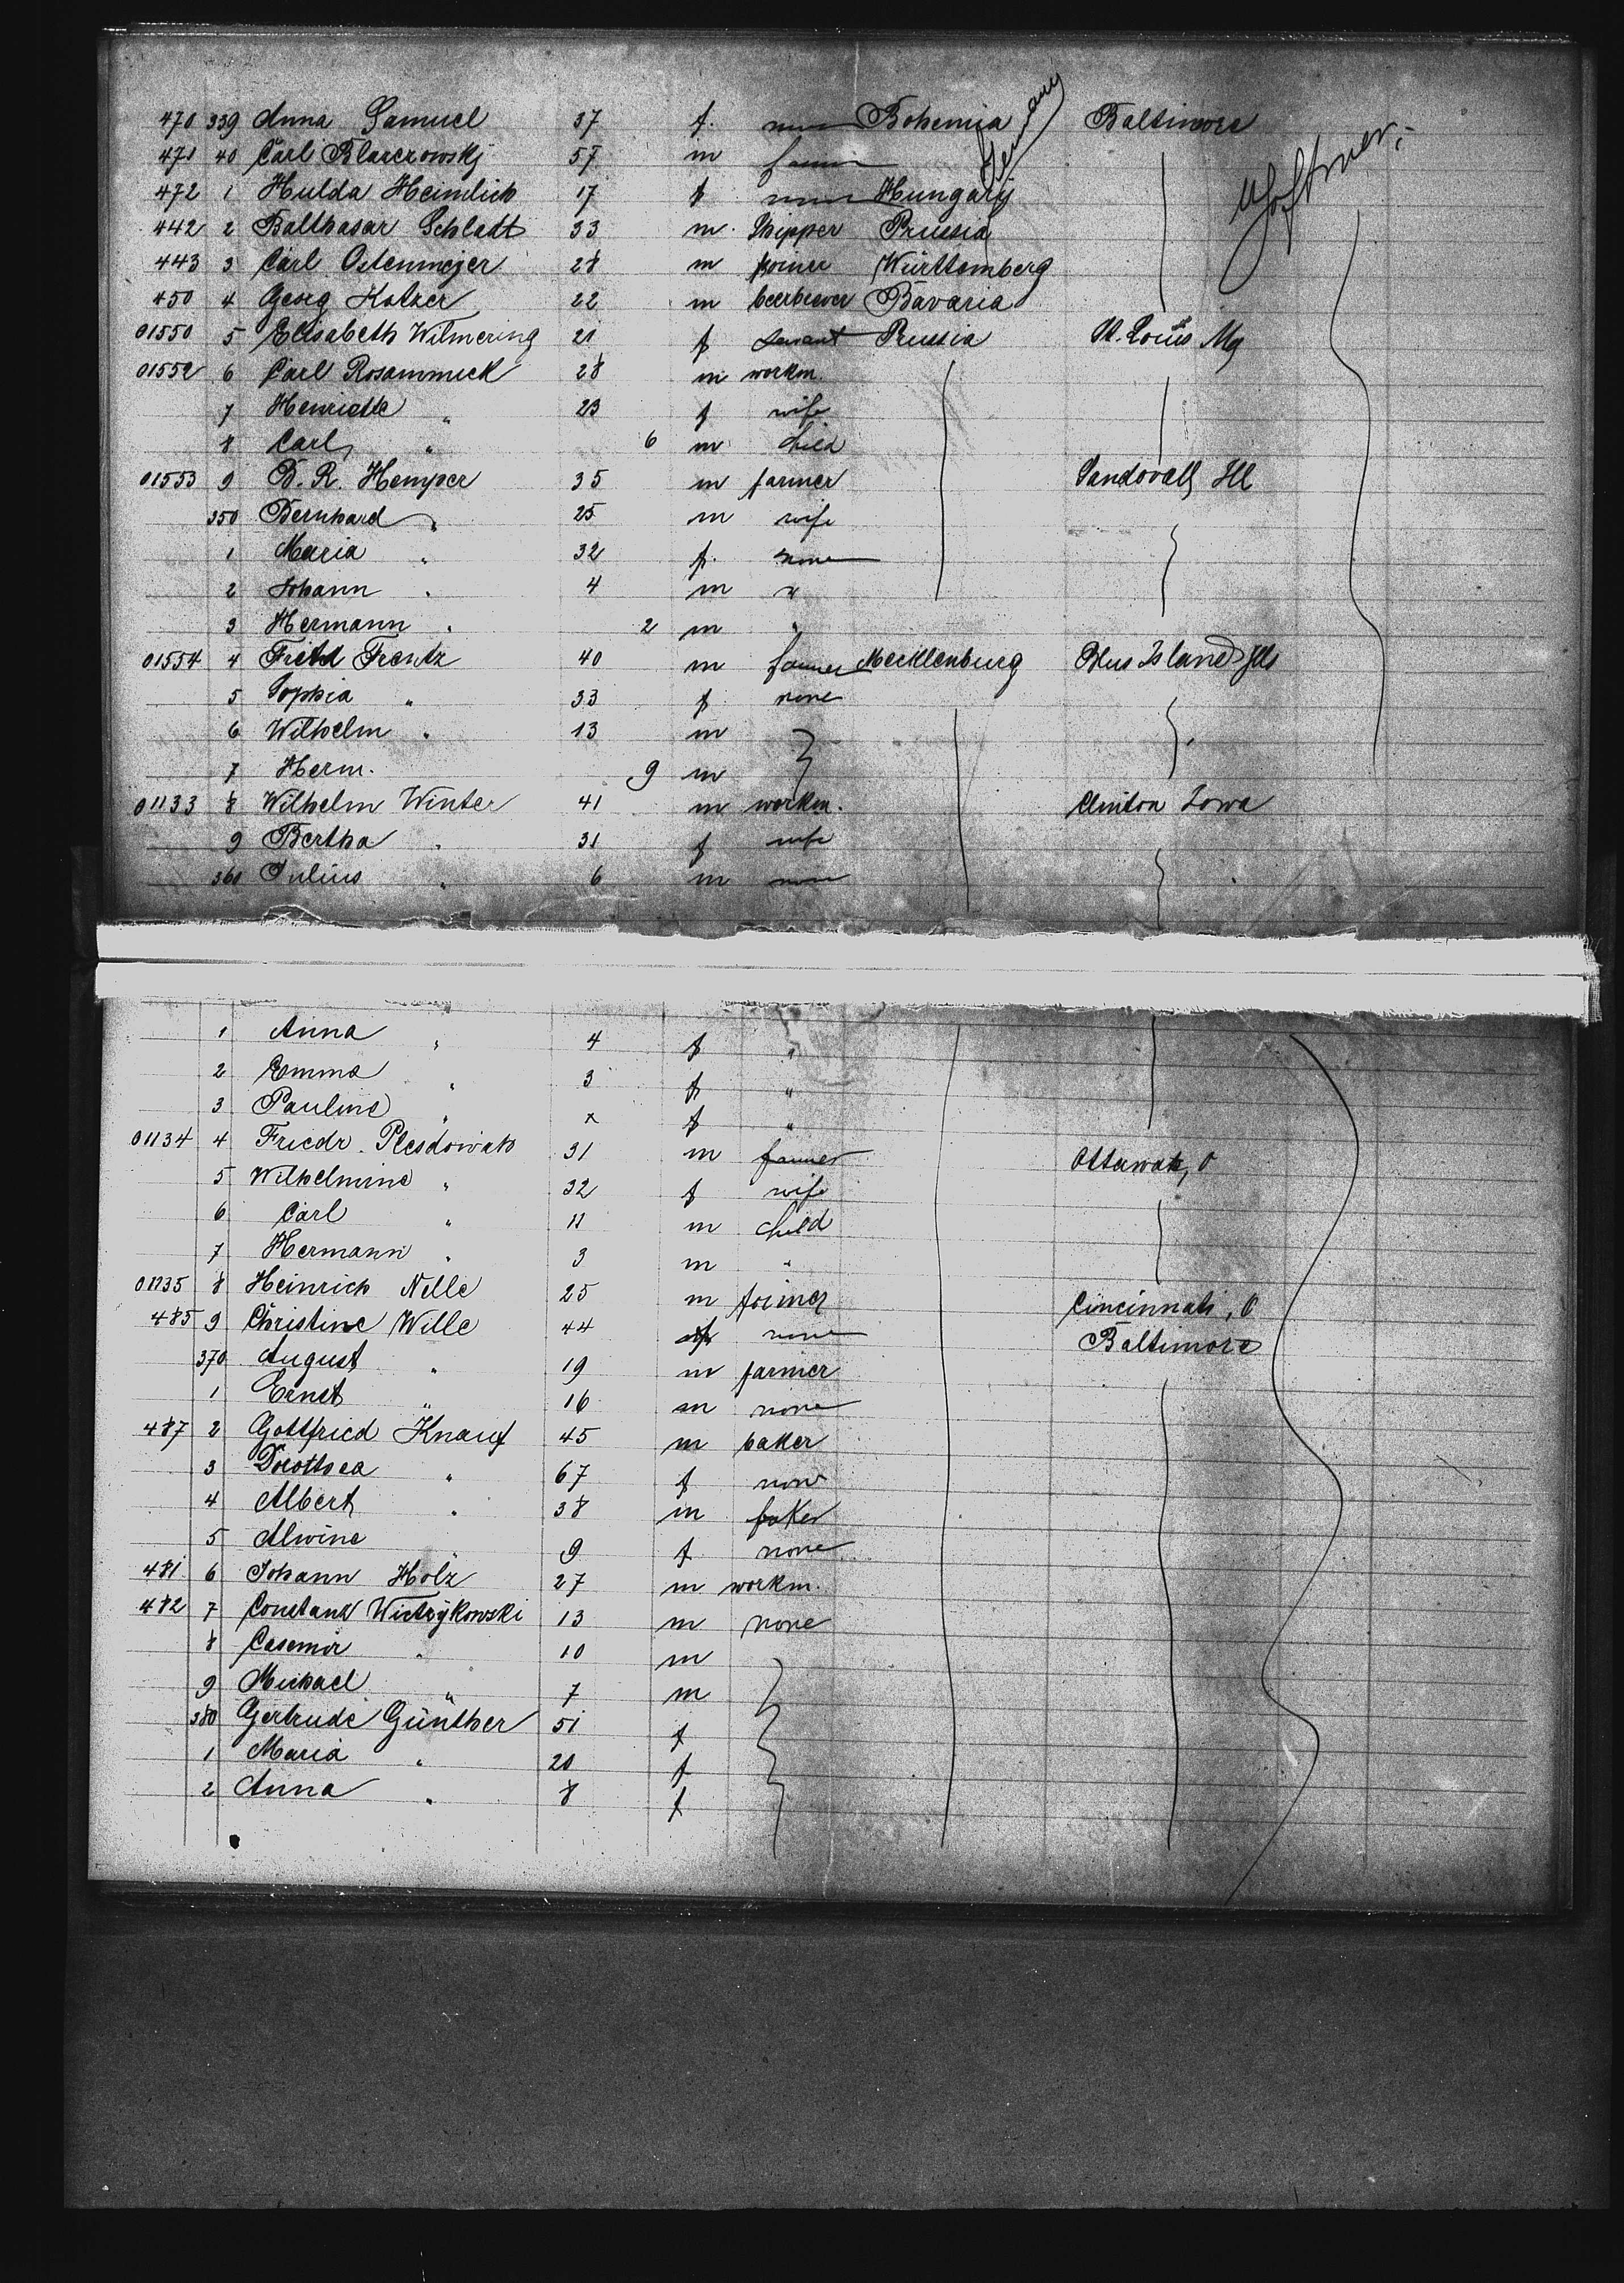 470 339 Anna Samuel 37 f. none Bohemia Baltimore
471 40 Carl 57 m Germany
472 1 Hulda Heimlich 17 f none Hungary
442 2 Balthasar Schlatt 33 m. Shipper Prussia
443 3 Carl Ostenmejer 28 m joiner Württemberg
450 4 Georg Kotzer 22 m beerbrewer Bavaria
01550 5 Elisabeth Wilmering 21 f servant Prussia St. Louis
01552 6 Carl Rosammeck 28 m workm.
7 Henriette " 23 f wife
8 Carl " 6 m child
01553 9 B. R. Hemper 35 m farmer Sandovall Ill
350 Bernhard " 25 m wife
1 Maria " 32 f. none
2 Johann " 4 m "
3 Hermann " 2 m "
01554 4 Frentz 40 m farmer Mecklenburg Blue Island Ills
5 Sophia " 33 f none
6 Wilhelm " 13 m
7 Herm. 9 m
01133 8 Wilhelm Winter 41 m workm. Clinton Iowa
9 Bertha " 31 f wife
360 Julius " 6 m none
1 Anna " 4 f "
2 Emma " 3 f "
3 Pauline " x f "
01134 4 Friedr. 31 m farmer
5 Wilhelmine " 32 f wife
6 Carl " 11 m child
7 Hermann " 3 m "
01135 8 Heinrich Nelle 25 m joiner Cincinnati, O
485 9 Christine Wille 44 f none Baltimore
370 August " 19 m farmer
1 Ernst " 16 m none
487 2 Gottfried Knauf 45 m baker
3 Dorothea " 67 f none
4 Albert " 38 m baker
5 Alwine " 9 f none
481 6 Johann Holz 27 m workm.
482 7 Constanz Wietrzykowski 13 m none
8 Casemir " 10 m
9 Michael " 7 m
380 Gertrude Günther 51 f
1 Maria " 20 f
2 Anna " 8 f